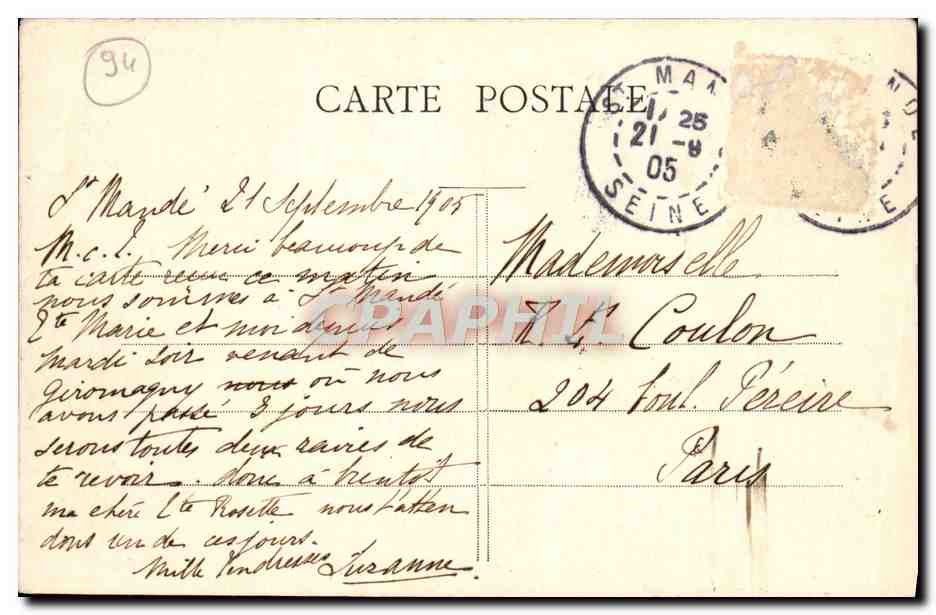 94
CARTE POSTALE
ST MANDE
21 -9
05
SEINE
St Mandé 21 Septembre 1905
M.c.L. Merci beaucoup de
ta carte reçue ce matin
nous sommes à St Mandé
Marie et moi depuis
mardi soir venant de
Giromagny nous où nous
avons passé 3 jours nous
serons toutes deux ravies de
te revoir. donc à bientôt
ma chère Rosette nous t'atten
dons un de ces jours.
Mille Tendresses Suzanne.
Mademoiselle
R. Coulon
204 boul. Péreire
Paris
CPAPHIL